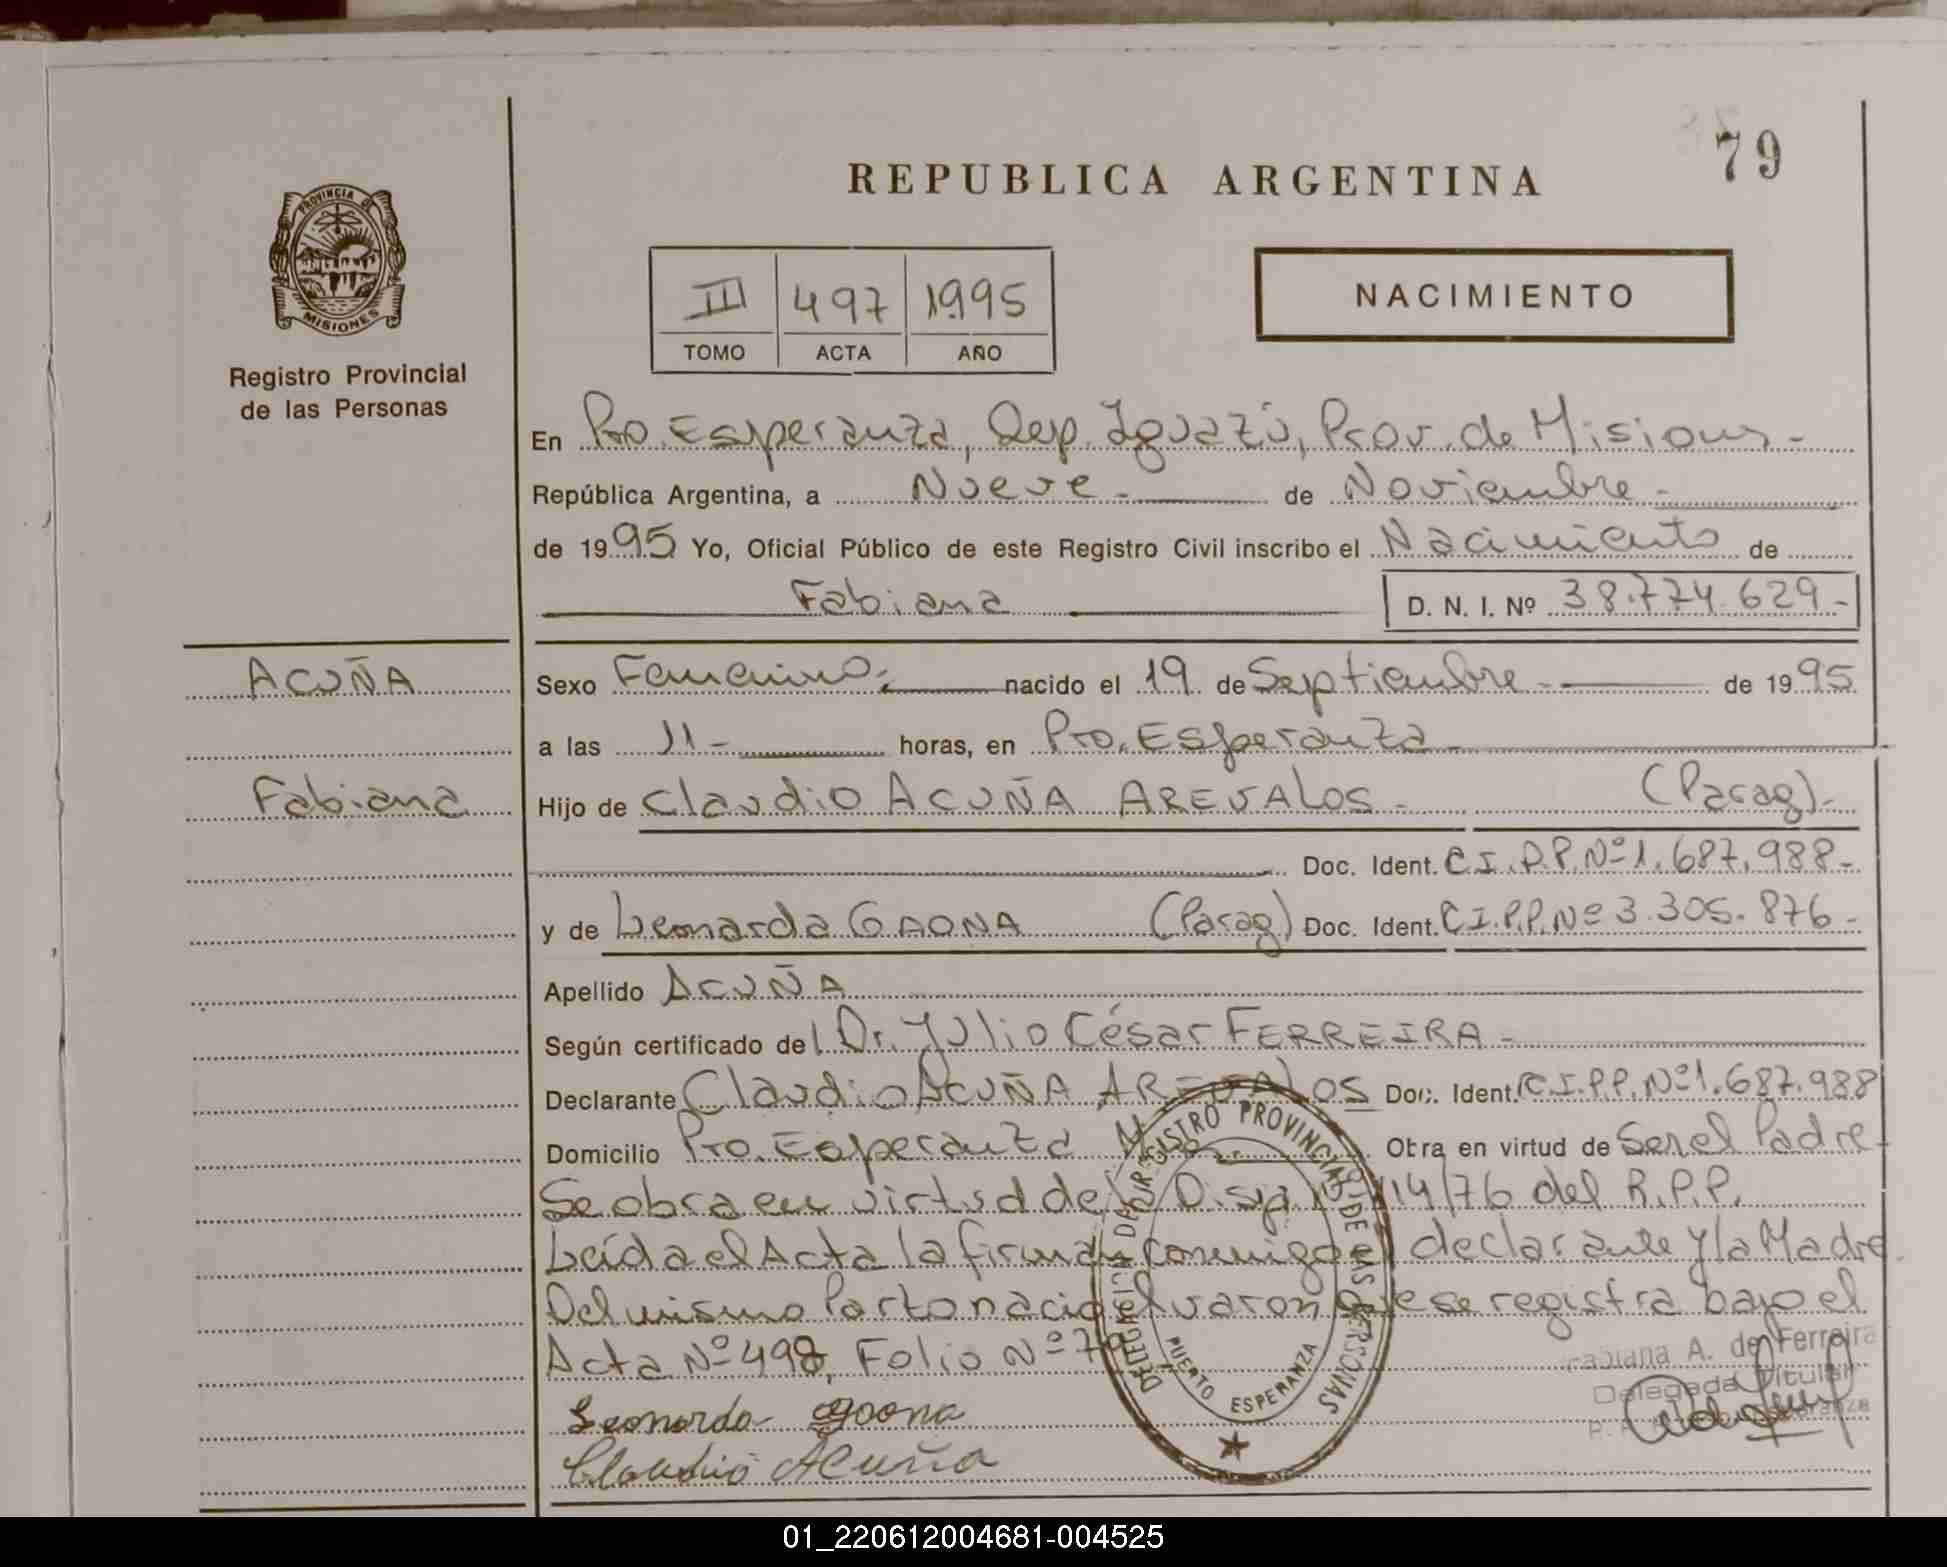 79
REPUBLICA ARGENTINA
PROVINCIA DE
MISIONES
Registro Provincial
de las Personas
III 497 1995
TOMO ACTA AÑO
NACIMIENTO
En Pto. Esperanza, Dep. Iguazú, Prov. de Misiones -
República Argentina, a Nueve - de Noviembre -
de 1995 Yo, Oficial Público de este Registro Civil inscribo el Nacimiento de
Fabiana D. N. I. Nº 38.774.629 -
ACUÑA
Sexo Femenino - nacido el 19 de Septiembre - de 1995
a las 11 - horas, en Pto. Esperanza -
Fabiana
Hijo de Claudio ACUÑA AREVALOS - (Parag) -
Doc. Ident. C.I.P.P. Nº 1.687.988 -
y de Leonarda GAONA (Parag) Doc. Ident. C.I.P.P. Nº 3.305.876 -
Apellido ACUÑA
Según certificado del Dr. Julio César FERREIRA -
Declarante Claudio ACUÑA AREVALOS Doc. Ident. C.I.P.P. Nº 1.687.988
Domicilio Pto. Esperanza Obra en virtud de Ser el Padre -
Se obra en virtud de Disp. 14/76 del R.P.P.
Leída el Acta la firman conmigo el declarante y la Madre
Del mismo Parto nació el varon que se registra bajo el
Acta Nº 498, Folio Nº
Leonarda gaona
Claudio Acuña
DELEGACION DEL REGISTRO PROVINCIAL DE LAS PERSONAS
PUERTO ESPERANZA
Fabiana A. de Ferreira
Delegada Titular
01_220612004681-004525